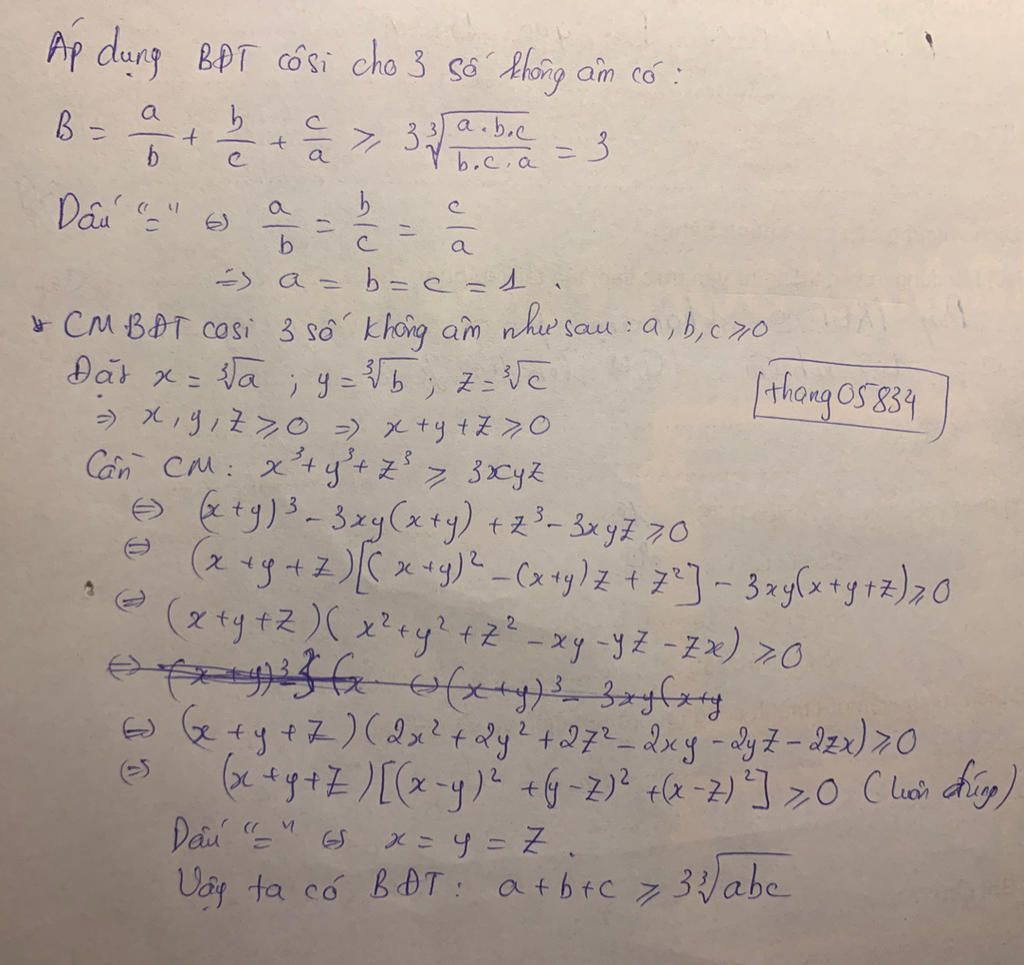 Áp dụng BĐT côsi cho 3 số không âm có:
B = a/b + b/c + c/a ⩾ 3∛(a.b.c/b.c.a) = 3
Dấu "=" ⇔ a/b = b/c = c/a
=> a = b = c = 1.
* CM BĐT cosi 3 số không âm như sau: a, b, c ⩾ 0
Đặt x = ∛a ; y = ∛b ; z = ∛c
thang05834
=> x, y, z ⩾ 0 => x + y + z ⩾ 0
Cần CM: x³ + y³ + z³ ⩾ 3xyz
⇔ (x+y)³ - 3xy(x+y) + z³ - 3xyz ⩾ 0
⇔ (x + y + z)[(x+y)² - (x+y)z + z²] - 3xy(x+y+z) ⩾ 0
⇔ (x+y+z)(x² + y² + z² - xy - yz - zx) ⩾ 0
⇔ (x + y + z)(2x² + 2y² + 2z² - 2xy - 2yz - 2zx) ⩾ 0
⇔ (x + y + z)[(x-y)² + (y-z)² + (x-z)²] ⩾ 0 (luôn đúng)
Dấu "=" ⇔ x = y = z.
Vậy ta có BĐT: a + b + c ⩾ 3∛abc